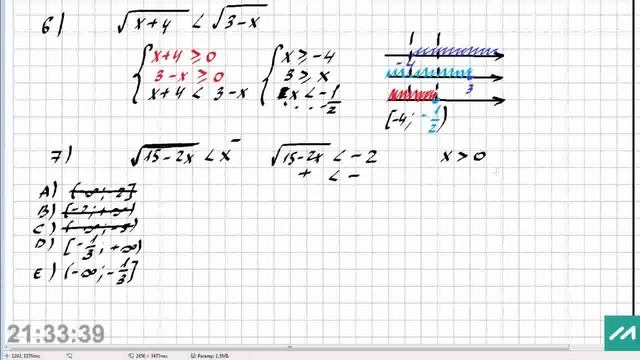 6) √(x+4) < √(3-x)
x+4 ≥ 0
3-x ≥ 0
x+4 < 3-x
x ≥ -4
3 ≥ x
x < -1/2
-4
3
[-4; -1/2)
7) √(15-2x) < x
√(15-2x) < -2
+ < -
x > 0
A)
B)
C)
D) [-1/3; +∞)
E) (-∞; -1/3]
21:33:39